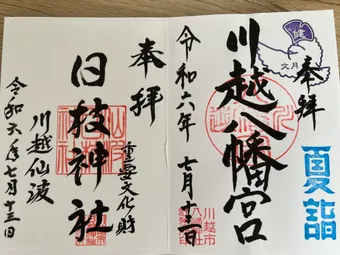 奉拝
夏詣
川越八幡宮
令和六年 七月十三日
健
文月
川越市
奉拝
重要文化財
日枝神社
川越仙波
令和六年七月十三日